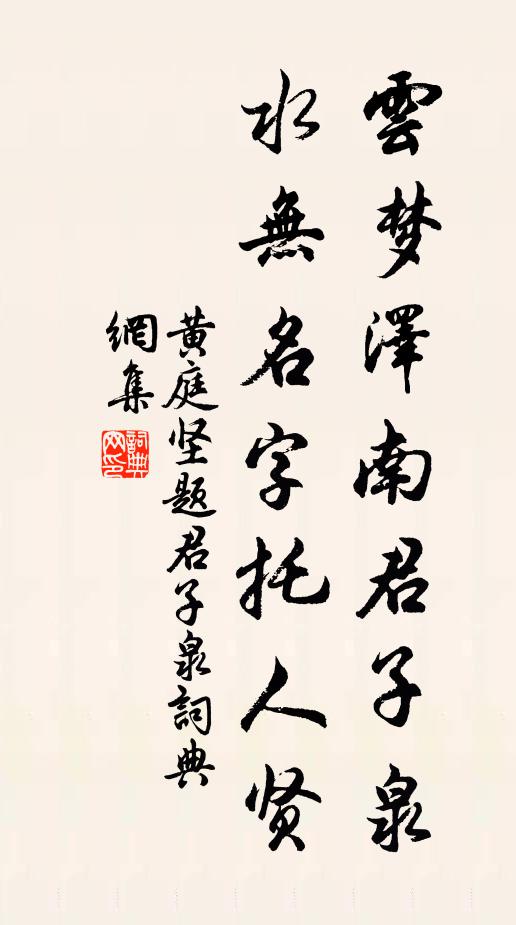 雲梦澤南君子泉
水無名字托人贤
黄庭坚题君子泉詞典
網集
詞典
网印